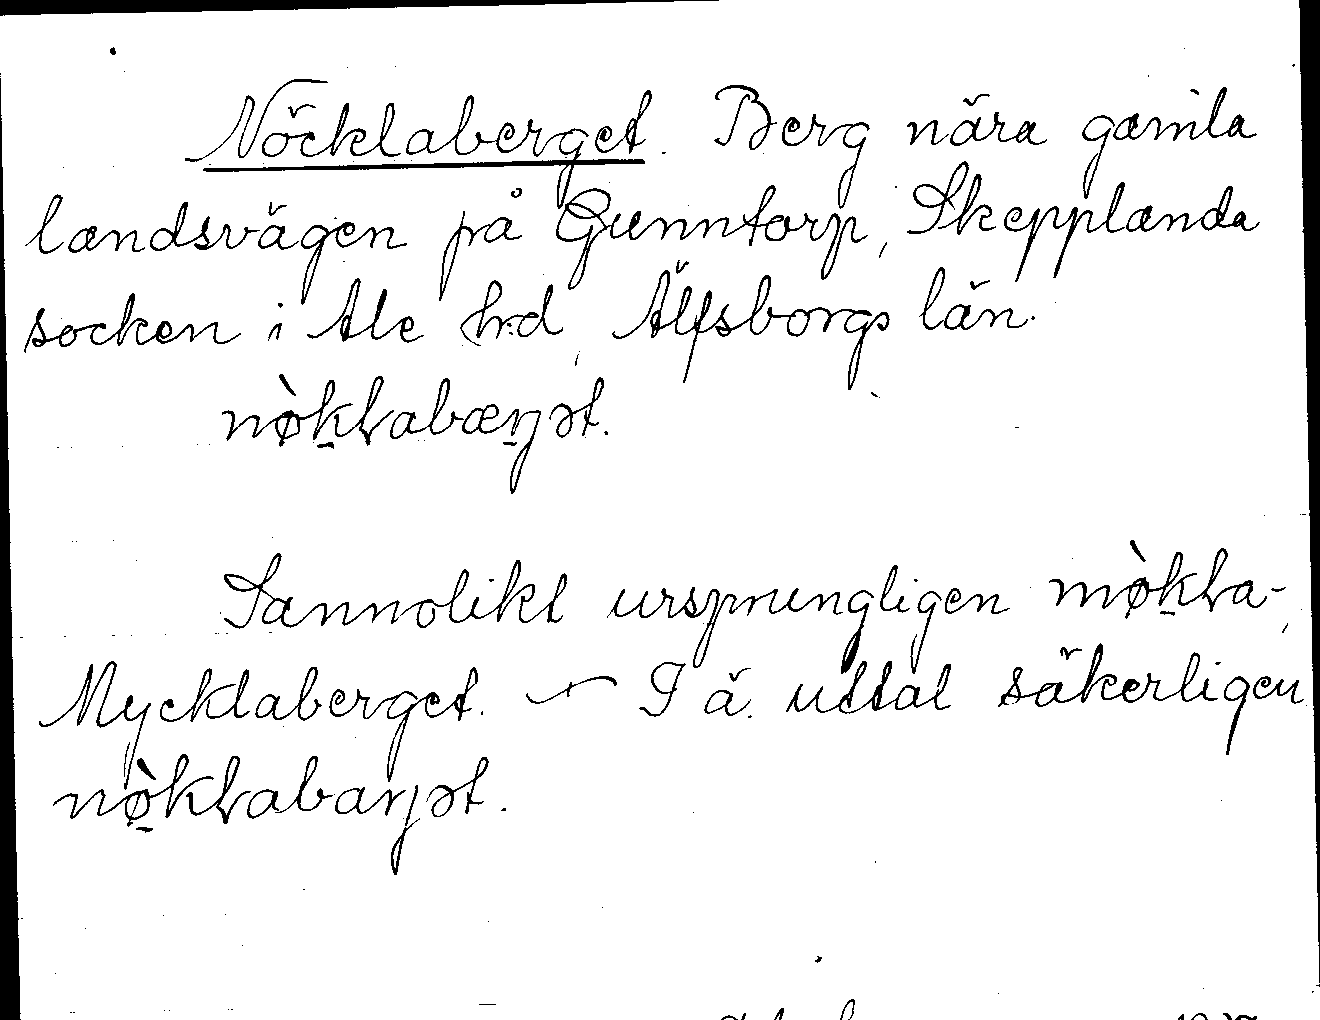 Nöcklaberget. Berg nära gamla
landsvägen på Gunntorp, Skepplanda
socken i Ale hd, Älfsborgs län.
nø̀kɬabærjət.
Sannolikt ursprungligen mø̀kɬa-,
Mycklaberget. — I ä. uttal säkerligen
nø̀kɬabarjət.